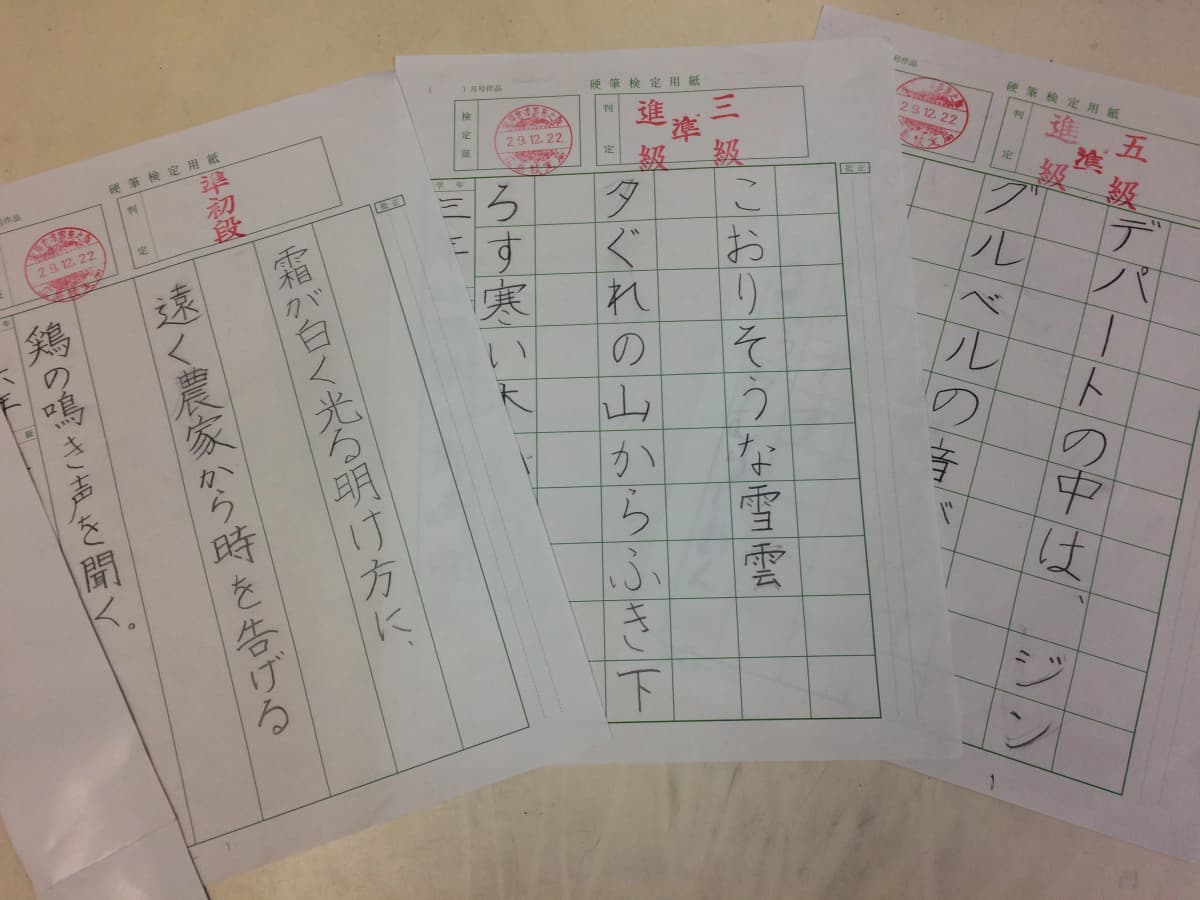 硬筆検定用紙
判定
準初段
29.12.22
批正
霜が白く光る明け方に、
遠く農家から時を告げる
鶏の鳴き声を聞く。
六年
)月号作品
硬筆検定用紙
検定証
29.12.22
判定
準三級
進級
批正
こおりそうな雪雲
夕ぐれの山からふき下
ろす寒い
学年
三年
号作品
硬筆検定用紙
29.12.22
判定
準五級
進級
デパートの中は、ジン
グルベルの音が